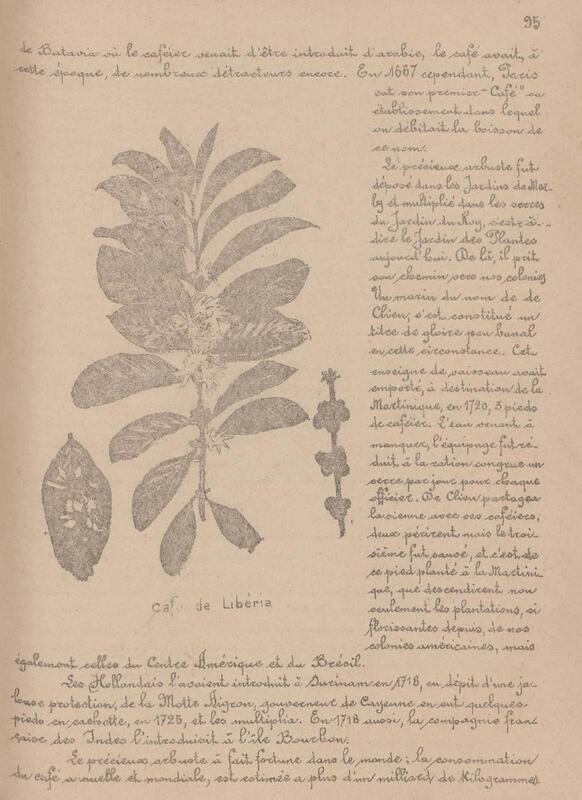 95
de Batavia où le caféier venait d'être introduit d'arabie, le café avait, à
cette époque, de nombreux détracteurs encore. En 1667 cependant, Paris
eut son premier "Café" ou
établissement dans lequel
on débitait la boisson de
ce nom.
Le précieux arbuste fut
déposé dans les Jardins de Mar-
ly et multiplié dans les serres
du Jardin du Roy, c'est-à-
dire le Jardin des Plantes
aujourd'hui. De là, il prit
son chemin vers nos colonies
Un marin du nom de de
Clieu, s'est constitué un
titre de gloire peu banal
en cette circonstance. Cet
enseigne de vaisseau avait
emporté, à destination de la
Martinique, en 1720, 3 pieds
de caféier. L'eau venant à
manquer, l'équipage fut ré-
duit à la ration congrue un
verre par jour pour chaque
officier. De Clieu partagea
la sienne avec ses caféiers,
deux périrent mais le troi-
sième fut sauvé, et c'est de
ce pied planté à la Martini-
que, que descendirent non
seulement les plantations, si
florissantes depuis, de nos
colonies américaines, mais
Café de Libéria
également celles du Centre Amérique et du Brésil.
Les Hollandais l'avaient introduit à Surinam en 1718, en dépit d'une ja-
louse protection, de la Motte Aigron, gouverneur de Cayenne en eut quelques
pieds en cachette, en 1725, et les multiplia. En 1718 aussi, la compagnie fran-
çaise des Indes l'introduisit à l'île Bourbon.
Le précieux arbuste à fait fortune dans le monde : la consommation
du café a nuelle et mondiale, est estimée a plus d'un milliard de Kilogrammes.